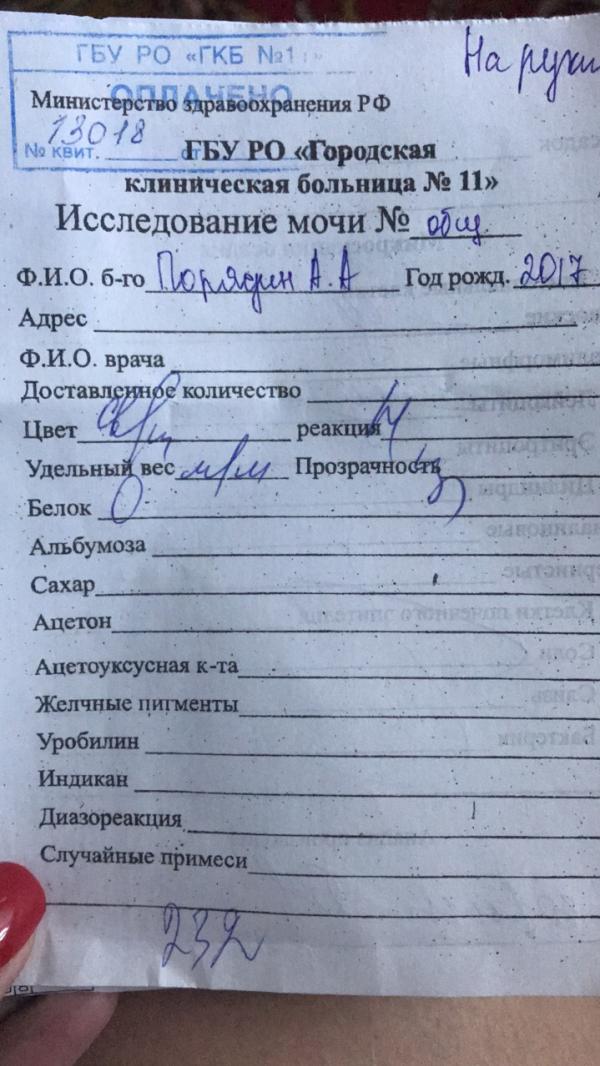 ГБУ РО «ГКБ №1
На руки
ОПЛАЧЕНО
Министерство здравоохранения РФ
№ квит. 13018 от
ГБУ РО «Городская
клиническая больница № 11»
Исследование мочи № общ
Ф.И.О. б-го Порядин А.А Год рожд. 2017
Адрес
Ф.И.О. врача
Доставленное количество
Цвет реакция
Удельный вес м/м Прозрачность
Белок 0
Альбумоза
Сахар
Ацетон
Ацетоуксусная к-та
Желчные пигменты
Уробилин
Индикан
Диазореакция
Случайные примеси
232